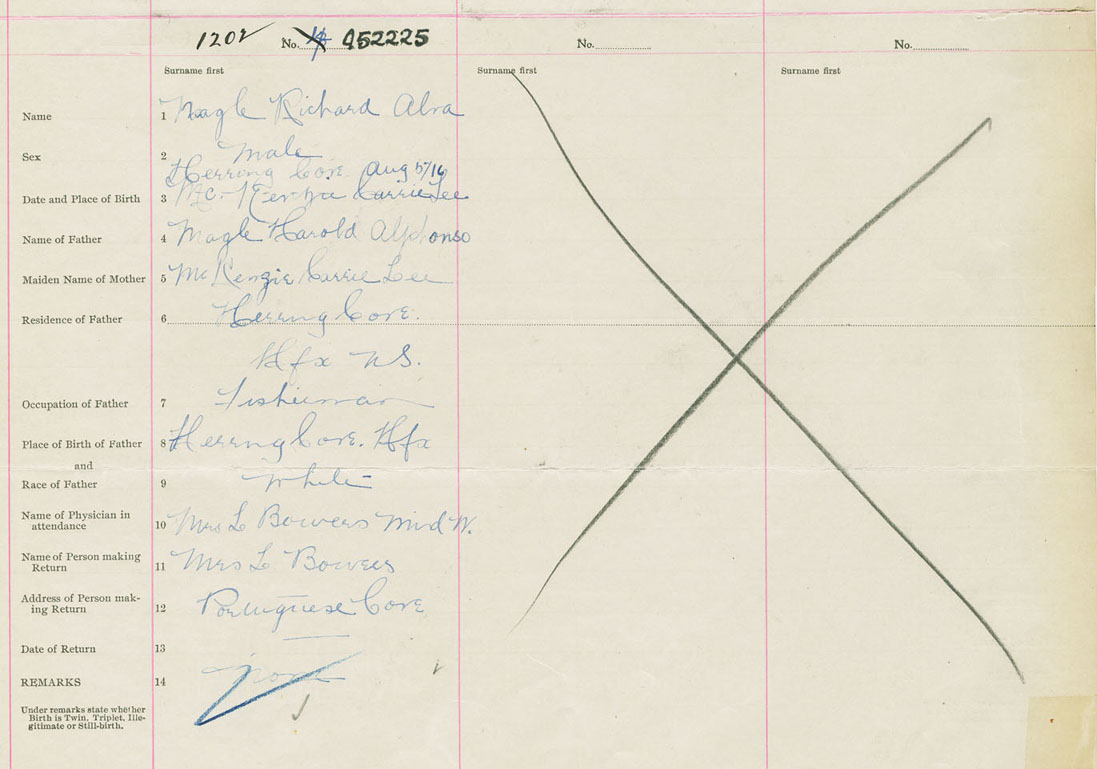 1202 No. 952225 No. No.
Surname first Surname first Surname first
Name 1 Nagle Richard Alva
Sex 2 Male
Herring Cove. Aug 5/16
Date and Place of Birth 3 Mc-Kenzie Carrie Lee
Name of Father 4 Nagle Harold Alphonso
Maiden Name of Mother 5 McKenzie Carrie Lee
Residence of Father 6 Herring Cove.
Hfx NS.
Occupation of Father 7 Fisherman
Place of Birth of Father 8 Herring Cove. Hfx
and
Race of Father 9 White
Name of Physician in
attendance 10 Mrs L Bowers Mid W.
Name of Person making
Return 11 Mrs L Bowers
Address of Person mak-
ing Return 12 Portuguese Cove
Date of Return 13
REMARKS 14
Under remarks state whether
Birth is Twin, Triplet, Ille-
gitimate or Still-birth.